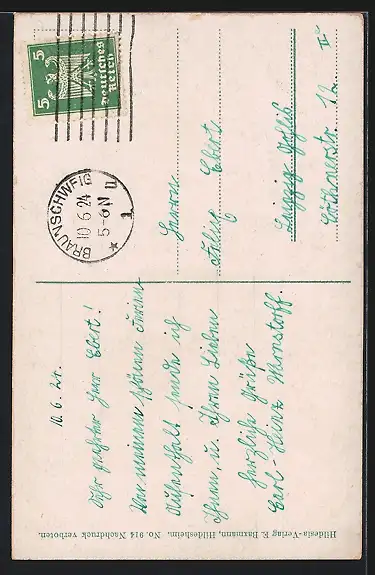 5 5
Deutsches
Reich
BRAUNSCHWEIG
10.6.24 5-6N
* 1 u
Herrn
Felix Ebert
Leipzig Gohlis
Cöthenerstr. 12 II
10. 6. 24.
Sehr geehrter Herr Ebert!
Von meinem schönen
Aufenthalt sende ich
Ihnen, u. Ihren Lieben
herzliche Grüße
Carl-Heinz
Hildesia-Verlag E. Baxmann, Hildesheim. No. 914 Nachdruck verboten.